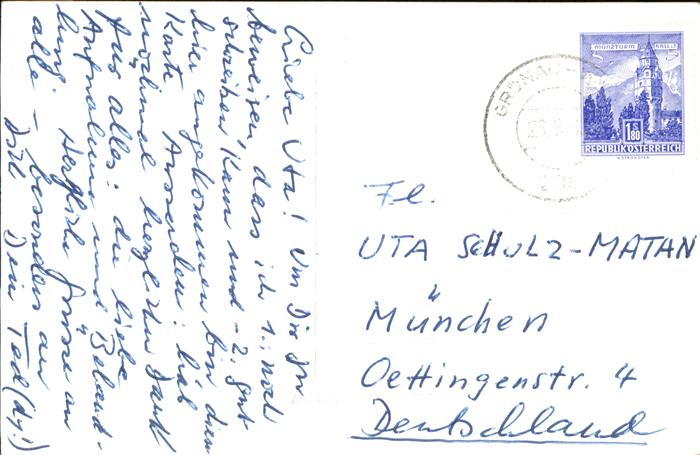 Liebe Uta! Um Dir zu
beweisen, dass ich 1. noch
schreiben kann und – 2. gut
hier angekommen bin diese
Karte. Ansonsten: hab
nochmal herzlichen Dank
für alles: die liebe
Aufnahme und Behand-
lung. Herzliche Grüsse an
alle – besonders an
Dich Dein Ted
MÜNZTURM HALL i. T.
S
1.80
REPUBLIK ÖSTERREICH
GRÜNAU
Fl.
UTA SCHULZ-MATAN
München
Oettingenstr. 4
Deutschland